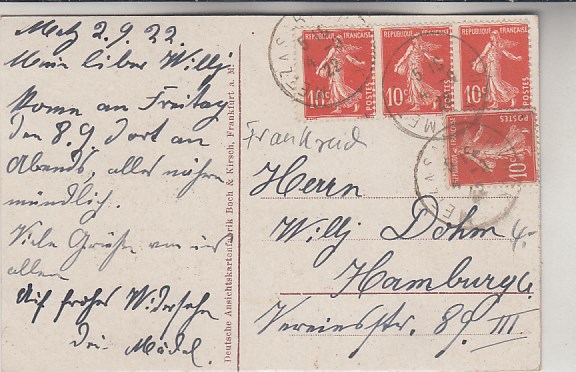 Metz 2.9.22.
Mein lieber Willy
Komme an Freitag
den 8.9. dort an
Abends, alles nähere
mündlich.
Viele Grüße von uns
allen
Auf frohes Wiedersehn
Dein Mädel.
Deutsche Ansichtskartenfabrik Boch & Kirsch, Frankfurt a. M.
REPUBLIQUE FRANÇAISE
10c
POSTES
REPUBLIQUE FRANÇAISE
10c
POSTES
REPUBLIQUE FRANÇAISE
10c
POSTES
10c
POSTES
Frankreich
Herrn
Willy Dohm
Hamburg
Vereinsstr. 89 III